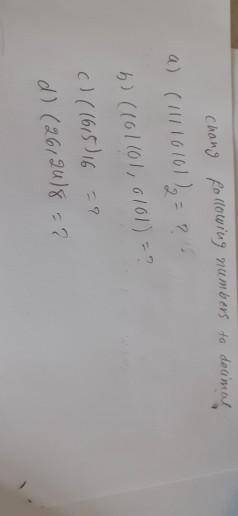 chang following numbers to decimal,
a) (11110101)₂ = ?
b) (101101, 0101) = ?
c) (16,5)16 = ?
d) (26,24)8 = ?